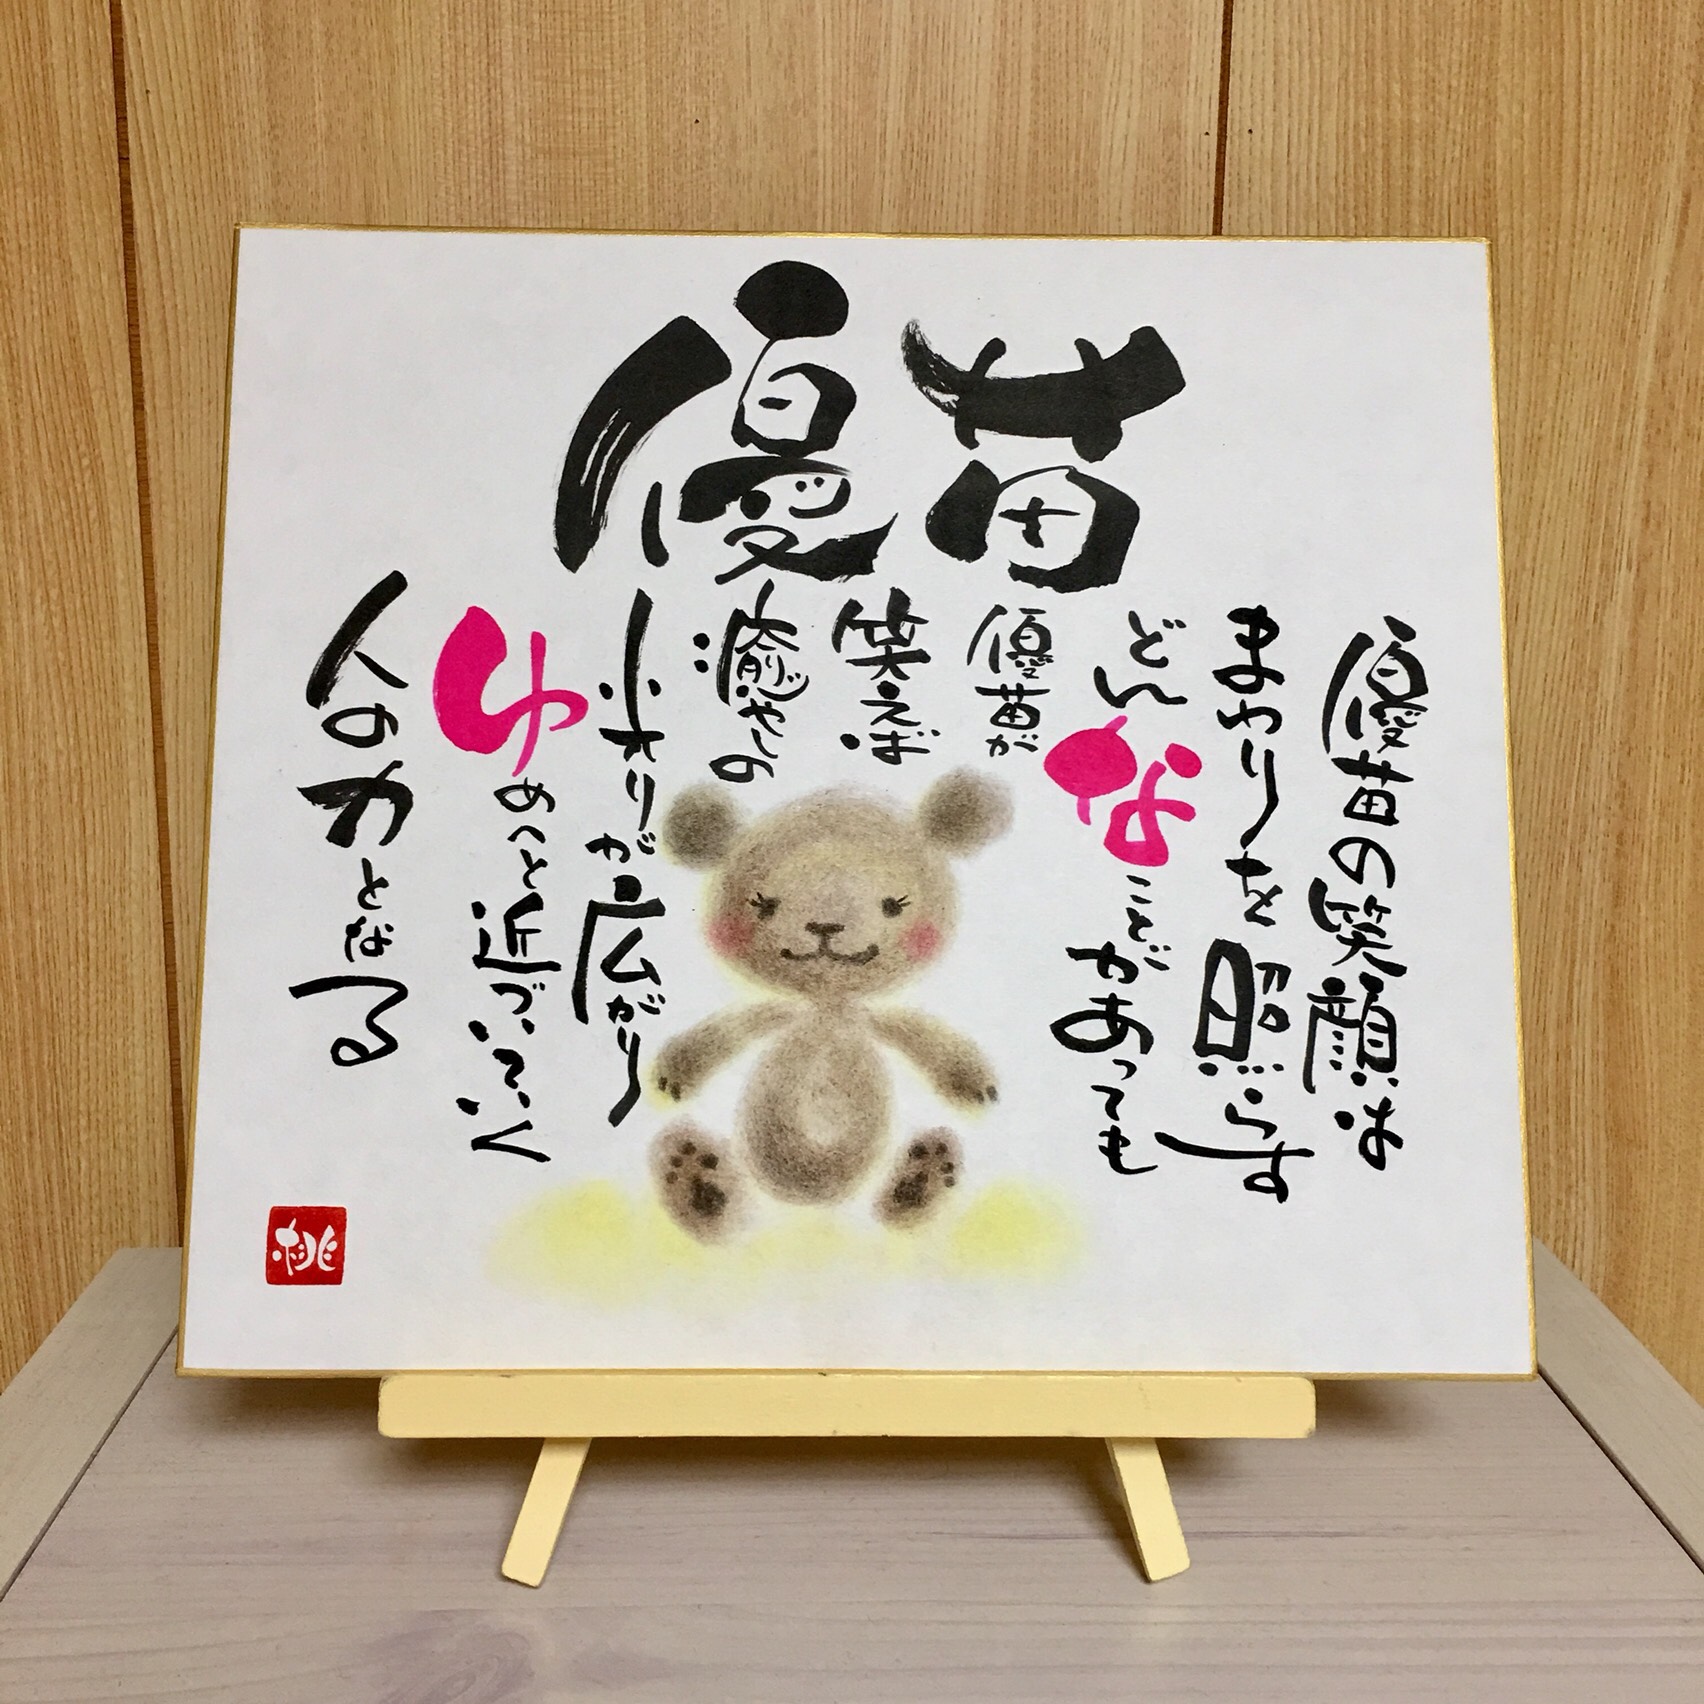 優苗
優苗の笑顔は
まわりを照らす
どんなことがあっても
優苗が
笑えば
癒やしの
光りが広がり
ゆめへと近づいていく
人の力となる
桃